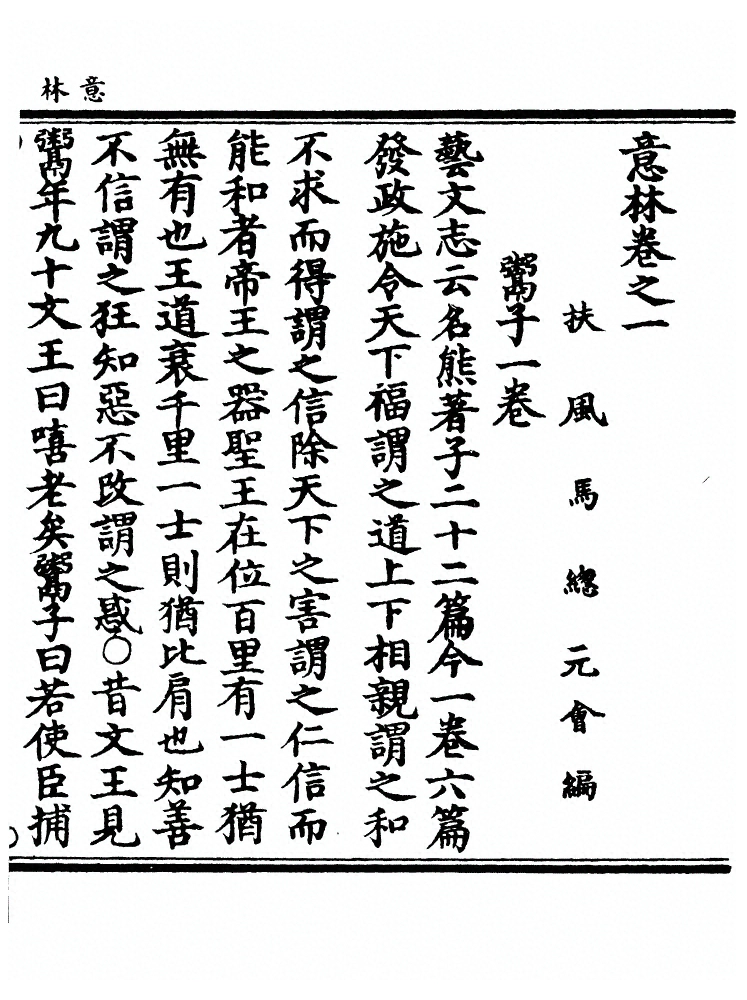 意林
意林卷之一
扶風馬總元會編
鬻子一卷
藝文志云名熊著子二十二篇今一卷六篇
發政施令天下福謂之道上下相親謂之和
不求而得謂之信除天下之害謂之仁信而
能和者帝王之器聖王在位百里有一士猶
無有也王道衰千里一士則猶比肩也知善
不信謂之狂知惡不改謂之惑○昔文王見
鬻年九十文王曰嘻老矣鬻子曰若使臣捕